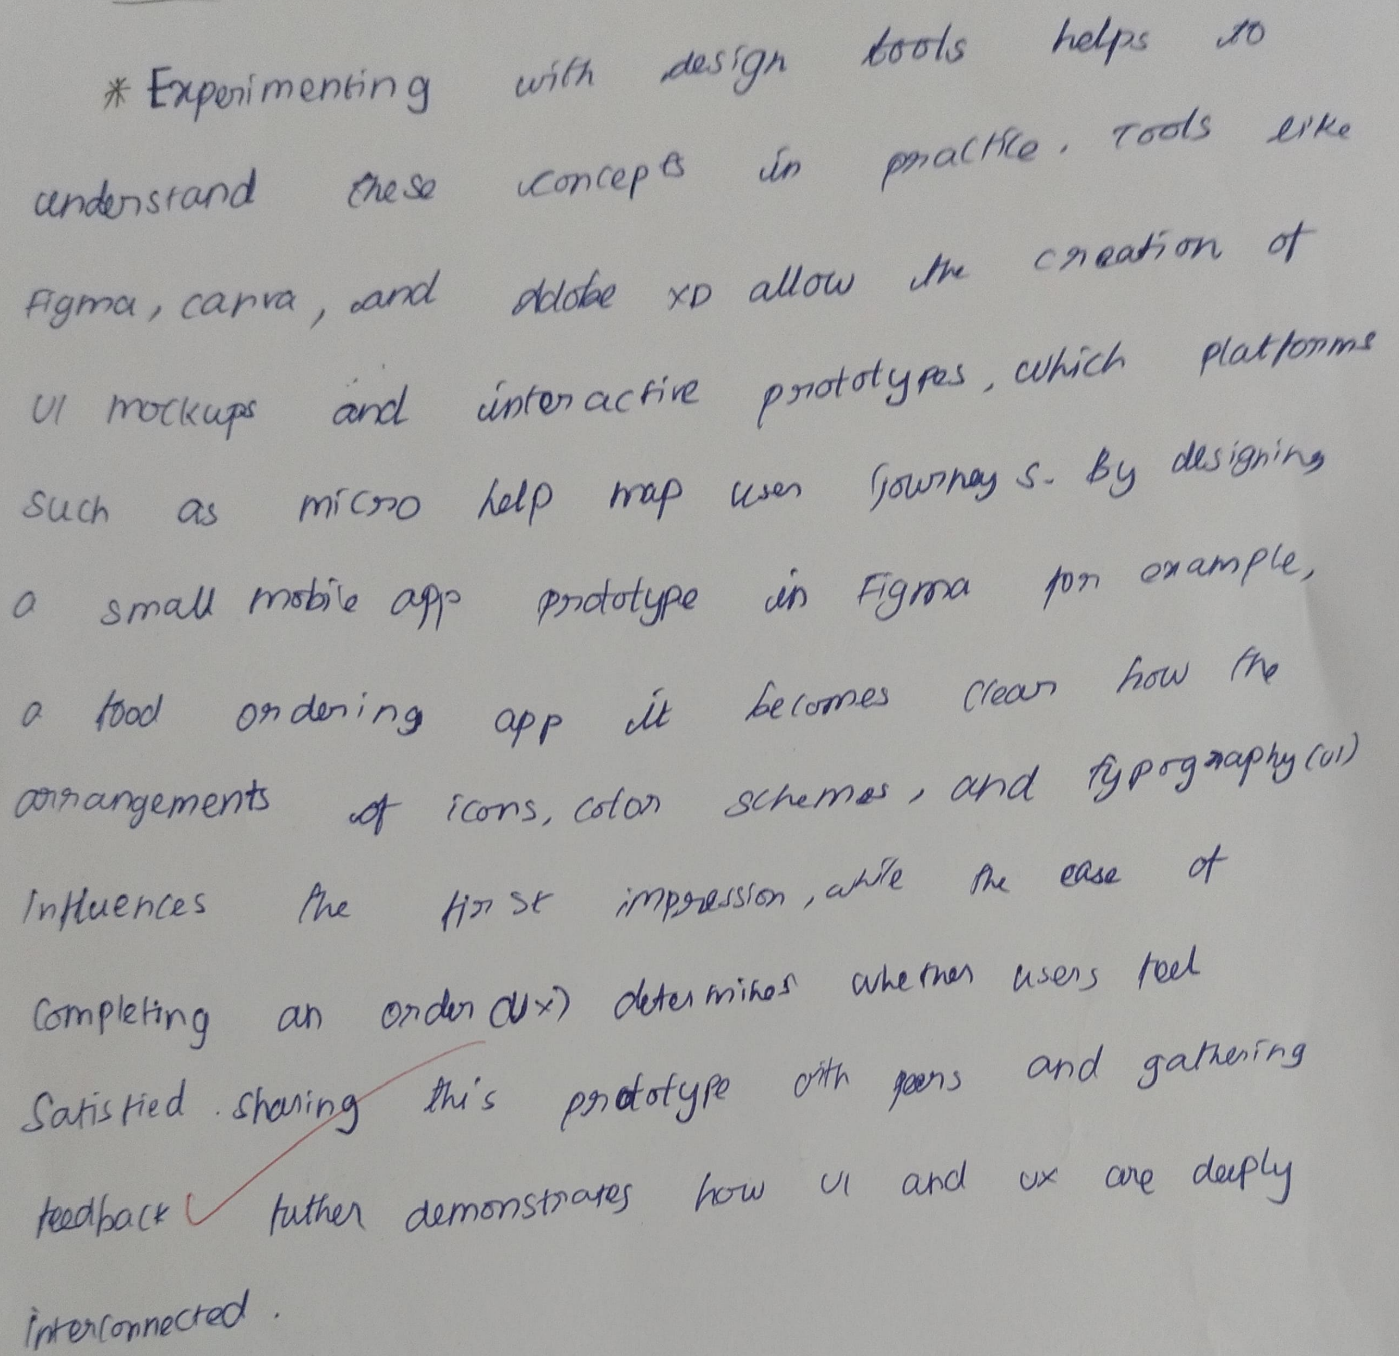 * Experimenting with design tools helps to
understand these concepts in practice. Tools like
Figma, canva, and Adobe XD allow the creation of
UI mockups and interactive prototypes, which platforms
such as micro help map user journeys. By designing
a small mobile app prototype in Figma for example,
a food ordering app it becomes clear how the
arrangements of icons, color schemes, and typography (UI)
Influences the first impression, while the ease of
Completing an order (UX) determines whether users feel
Satisfied. sharing this prototype with peers and gathering
feedback futher demonstrates how UI and UX are deeply
interconnected.